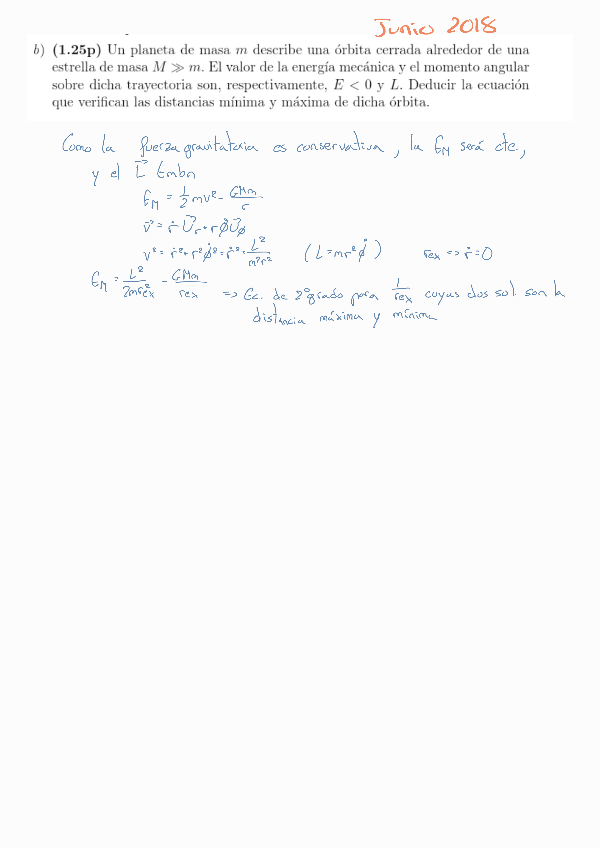 Junio 2018
b) (1.25p) Un planeta de masa m describe una órbita cerrada alrededor de una
estrella de masa M ≫ m. El valor de la energía mecánica y el momento angular
sobre dicha trayectoria son, respectivamente, E < 0 y L. Deducir la ecuación
que verifican las distancias mínima y máxima de dicha órbita.
Como la fuerza gravitatoria es conservativa, la E_M será cte,
y el L⃗ también
E_M = 1/2 mv² - GMm/r
v⃗ = ṙ U⃗_r + r φ̇ U⃗_φ
v² = ṙ² + r² φ̇² = ṙ² + L²/m²r² (L = mr² φ̇) r_ex => ṙ = 0
E_M = L²/2mr_ex² - GMm/r_ex => Ec. de 2º grado para 1/r_ex cuyas dos sol. son la
distancia máxima y mínima